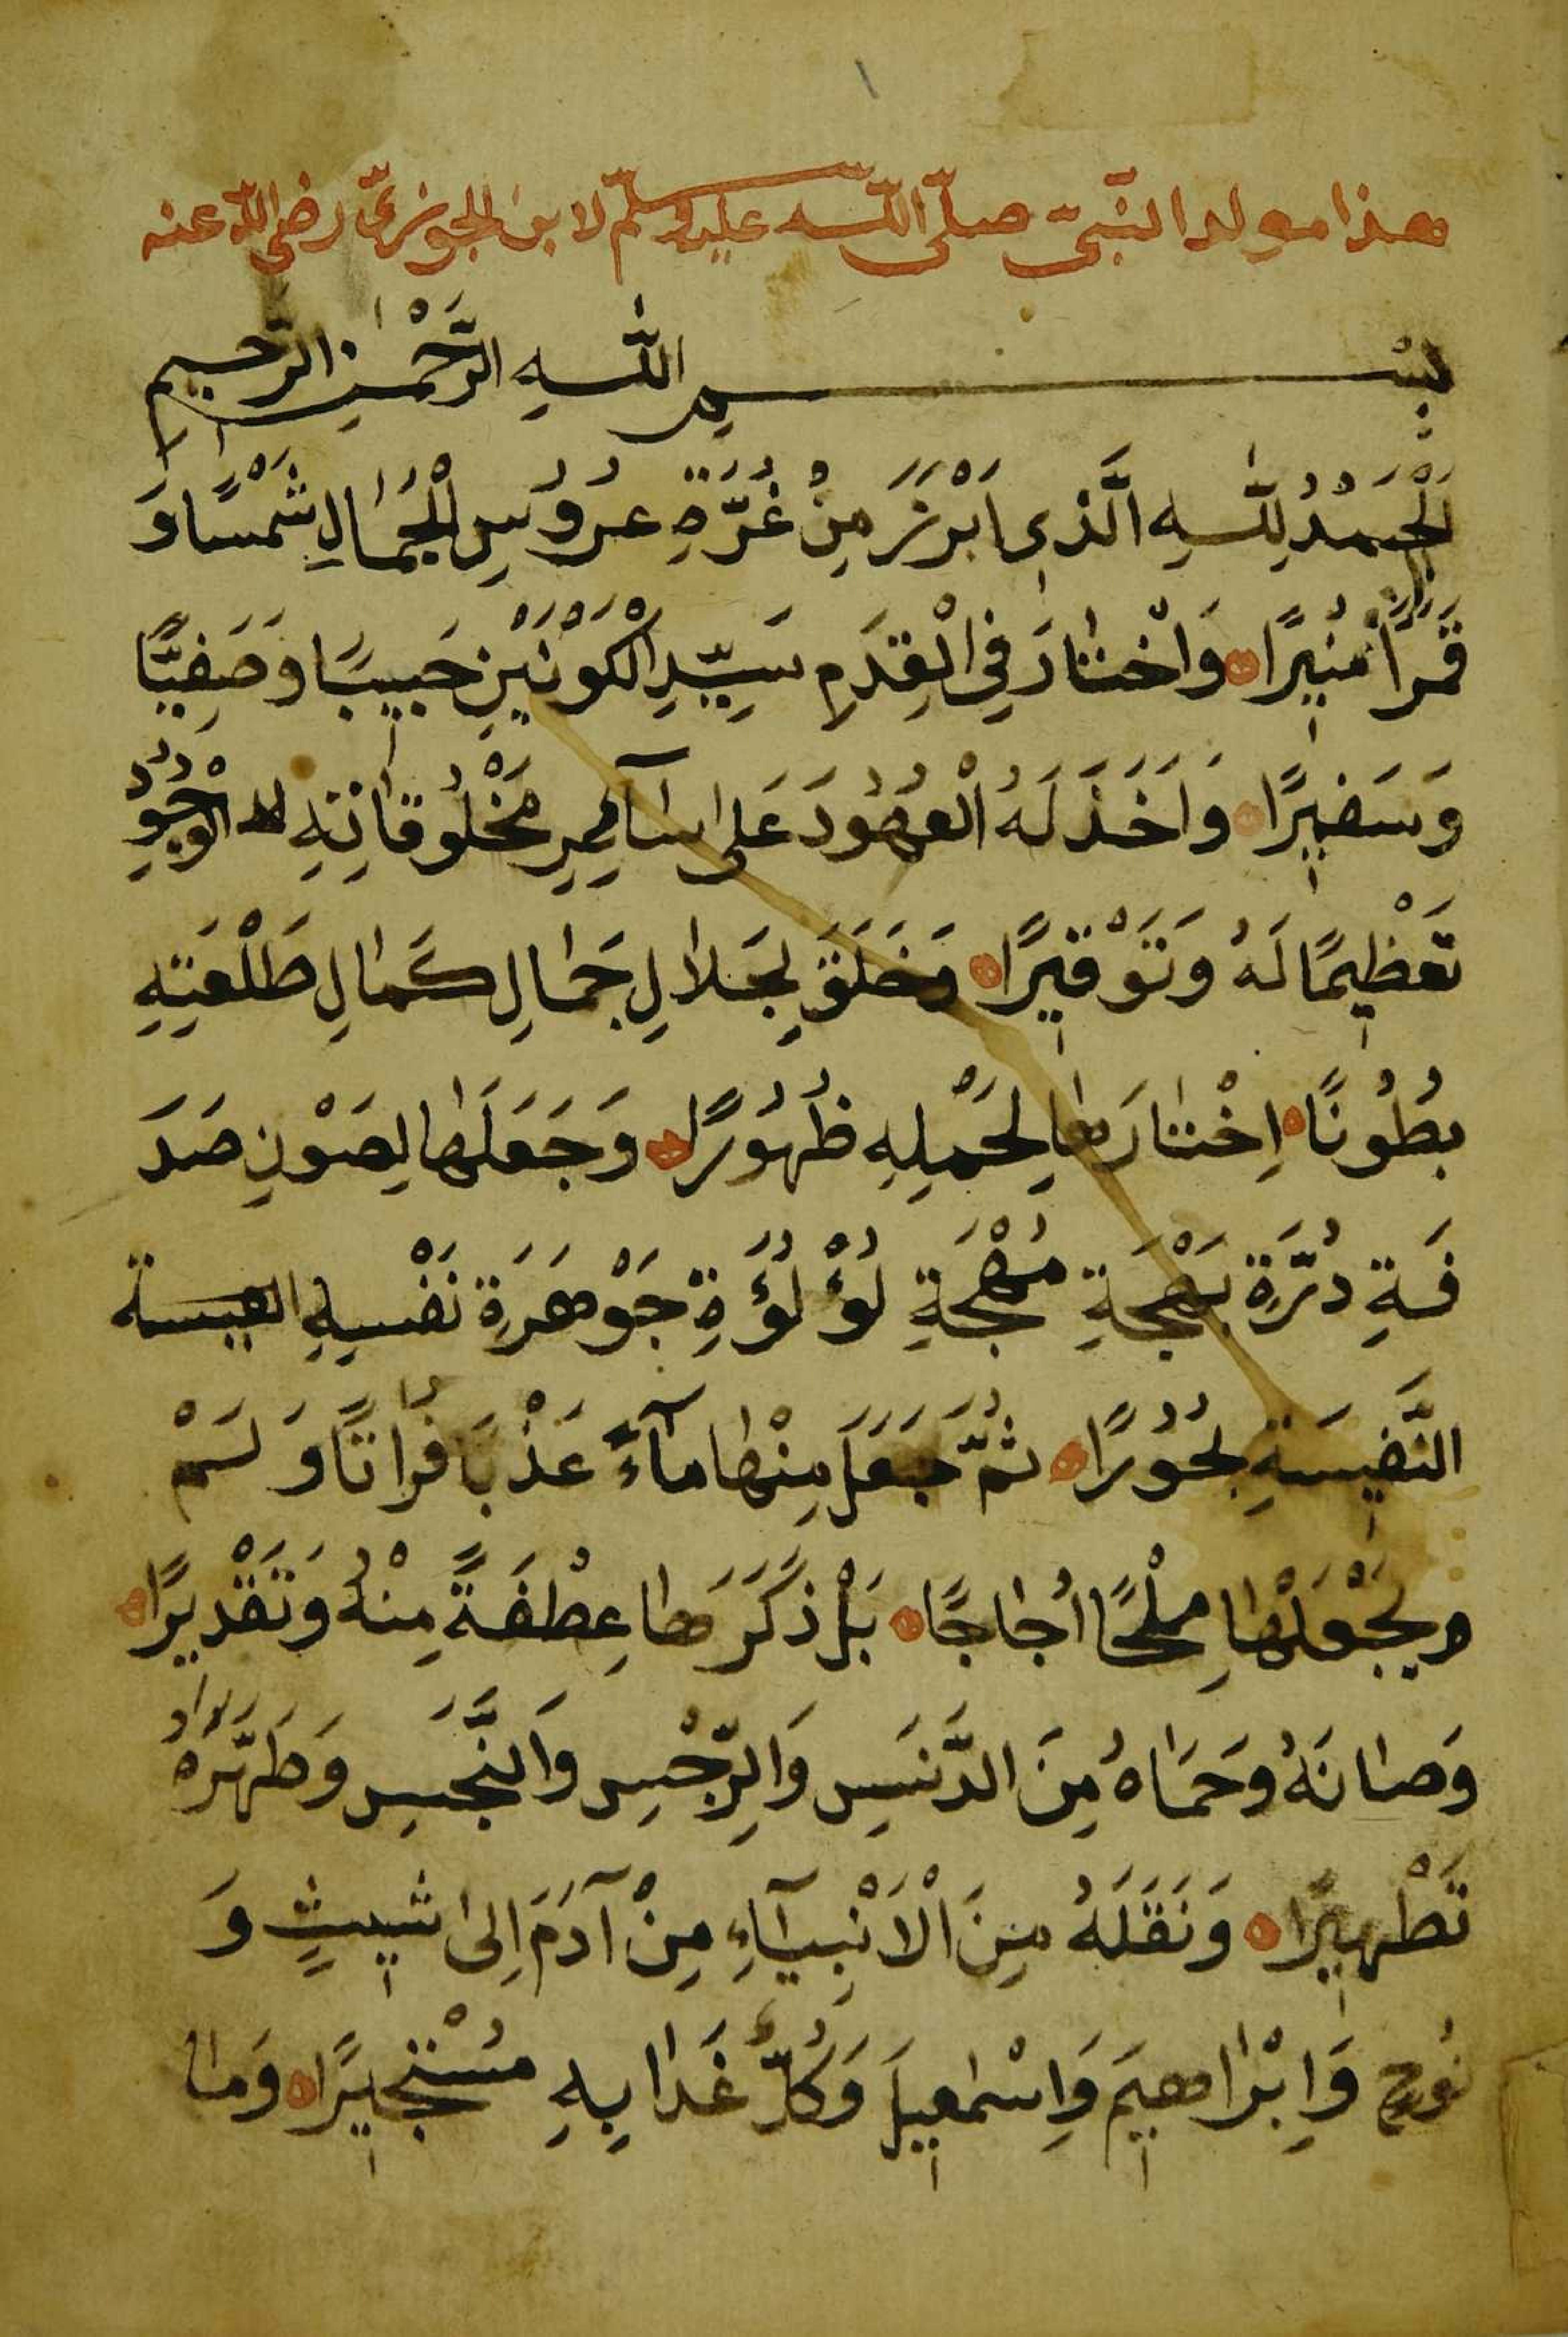 هذا مولد النبيّ صلّى اللّه عليه وسلّم لابن الجوزيّ رضى اللّه عنه
بِسْمِ اللّٰهِ الرَّحْمٰنِ الرَّحيمِ
اَلْحَمْدُ لِلّٰهِ الَّذٖى اَبْرَزَ مِنْ غُرَّةِ عَرُوسِ الْجَمَالِ شَمْسًا وَ
قَمَرًا مُنٖيرًا وَاخْتَارَ فِى الْقِدَمِ سَيِّدِ الْكَوْنَيْنِ حَبٖيبًا وَصَفِيًّا
وَسَفٖيرًا وَاَخَذَ لَهُ الْعُهُودَ عَلى سَآئِرِ مَخْلُوقَاتِهِ الوجُودِ
تَعْظٖيمًا لَهُ وَتَوْقٖيرًا وَخَلَقَ لِجَلَالِ جَمَالِ كَمَالِ طَلْعَتِهِ
بُطُونًا اِخْتَارَهَا لِحَمْلِهِ ظُهُورًا وَجَعَلَهَا لِصَوْنِ صَدَ
فَةِ دُرَّةِ بَهْجَةِ مُهْجَةِ لُؤْلُؤَةِ جَوْهَرَةِ نَفْسِهِ
النَّفٖيسَةِ بُحُورًا ثُمَّ جَعَلَ مِنْهَا مَآءً عَذْبًا فُرَاتًا وَلَمْ
يَجْعَلْهَا مِلْحًا اُجَاجًا بَلْ ذَكَرَهَا عِطْفَةً مِنْهُ وَتَقْدٖيرًا
وَصَانَهُ وَحَمَاهُ مِنَ الدَّنَسِ وَالرِّجْسِ وَالنَّجَسِ وَطَهَّرَهُ
تَطْهٖيرًا وَنَقَلَهُ مِنَ الْاَنْبِيَآءِ مِنْ آدَمَ اِلىٰ شٖيثٍ وَ
نُوحٍ وَاِبْرَاهٖيمَ وَاِسْمٰعٖيلَ وَكُلٌّ غَدَا بِهِ مُسْتَجٖيرًا وَمَا